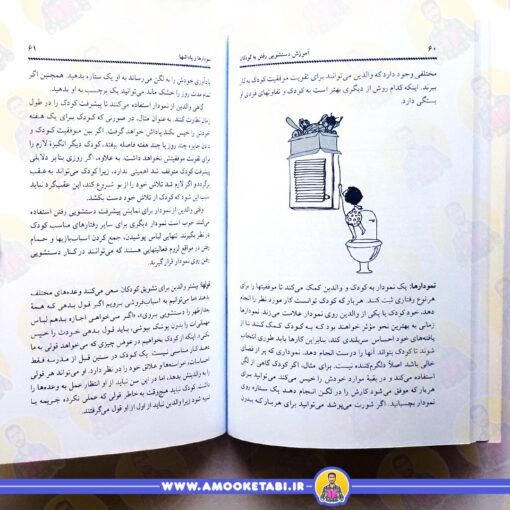 ۶۰
آموزش دستشویی رفتن به کودکان
مختلفی وجود دارد که والدین می‌توانند برای تقویت موفقیت کودک به کار
ببرند. اینکه کدام روش از دیگری بهتر است به کودک و تفاوتهای فردی او
بستگی دارد.
نمودارها: یک نمودار به کودک و والدین کمک می‌کند تا موفقیتها را برای
هر نوع رفتاری ثبت کنند. هر بار که کودک توانست کار مورد نظر را انجام
دهد، خود کودک یا یکی از والدین روی نمودار علامت می‌زند. نمودارها
زمانی به بهترین نحو مؤثر خواهند بود که به کودک کمک کنند تا از
یافته‌های خود احساس سربلندی کند، بنابراین کارها باید طوری انتخاب
شوند تا کودک بتواند آنها را درست انجام دهد. نموداری که پر از فضای
خالی باشد اصلاً دلگرم‌کننده نیست. برای مثال، اگر کودک گاهی از لگن
استفاده می‌کند و در بقیهٔ موارد خودش را خیس می‌کند می‌توانید برای
هر بار که موفق می‌شود کارش را در لگن انجام دهد یک ستاره روی
نمودار بچسبانید. اگر شورت می‌پوشد می‌توانید برای هر بار که بدون
نمودارها و پاداشها
۶۱
یادآوری خودش را به لگن می‌رساند به او یک ستاره بدهید. همچنین اگر
تمام مدت روز را خشک ماند می‌توانید یک برچسب به او بدهید.
گاهی والدین از نمودار استفاده می‌کنند تا پیشرفت کودک را در طول
زمان نظارت کنند. به عنوان مثال، در صورتی که کودک برای یک هفته
خودش را خیس نکند پاداش خواهد گرفت. اگر بین موفقیت کودک و
دادن جایزه چند روز یا چند هفته فاصله بیفتد، کودک دیگر انگیزهٔ لازم را
برای تقویت موفقیتش نخواهد داشت. به علاوه، اگر روزی بنابر دلایلی
پیشرفت کودک متوقف شد اهمیتی ندارد، زیرا کودک می‌تواند به عقب
برگردد و اگر لازم شد تلاش خود را از نو شروع کند، این عقبگرد نباید
سبب این شود که کودک از تلاش خود دست بکشد.
وقتی والدین از نمودار برای نمایش پیشرفت دستشویی رفتن استفاده
می‌کنند خوب است نمودار دیگری برای سایر رفتارهای مناسب کودک
در نظر بگیرند. تنهایی لباس پوشیدن، جمع کردن اسباب‌بازیها و حمام
رفتن در مواقع لزوم فعالیتهایی هستند که می‌توانند در کنار دستشویی
رفتن روی نمودار قرار گیرند.
قولها: بیشتر والدین برای تشویق کودکان سعی می‌کنند وعده‌های مختلف
دهند اما می‌توانیم به اسباب‌فروشی برویم اگر قول بدهی که همهٔ
مهمانی‌ات را بدون پوشک بپوشی، باید قول بدهی خودت را خیس
کار مناسبی نیست. یک کودک در سنین قبل از مدرسه فقط
احساسات، خواسته‌ها و علائق خود را در نظر دارد. او می‌تواند هر قولی
را به والدینش بدهد، اما در این سن نباید از او انتظار عمل به وعده‌ها را
داشت. کودک نباید هیچ‌وقت به خاطر قولی که عملی نکرده جریمه یا
تنبیه شود زیرا والدین نباید از اول از او قول می‌گرفتند.
WWW.AMOOKETABI.IR